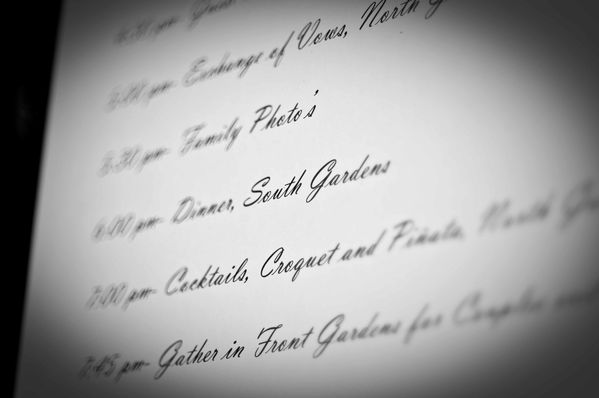 4:30 pm-
5:00 pm- Exchange of Vows, North G
5:30 pm- Family Photo's
6:00 pm- Dinner, South Gardens
7:00 pm- Cocktails, Croquet and Piñata, North Ga
7:45 pm- Gather in Front Gardens for Couples and